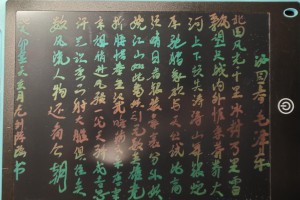 沁园春 毛泽东
北国风光千里冰封万里雪
飘望长城内外惟余莽莽大
河上下顿失滔滔山舞银蛇
原驰蜡象欲与天公试比高
须晴日看红装素裹分外妖
娆江山如此多娇引无数英雄
折腰惜秦皇汉武
宗宋祖稍逊风骚一代天骄成吉思
汗只识弯弓射大雕俱往矣
数风流人物还看今朝
书